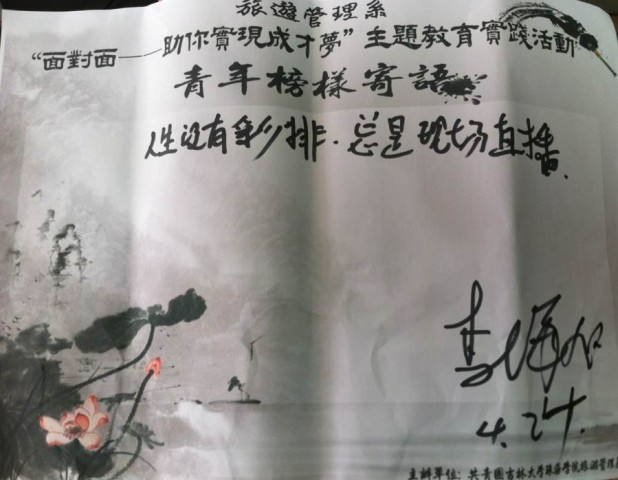 旅遊管理系
“面對面——助你實現成才夢”主題教育實踐活動
青年榜樣寄語
人生没有彩排.总是现场直播.
4.24.
主辦單位:共青團吉林大學珠海學院旅游管理